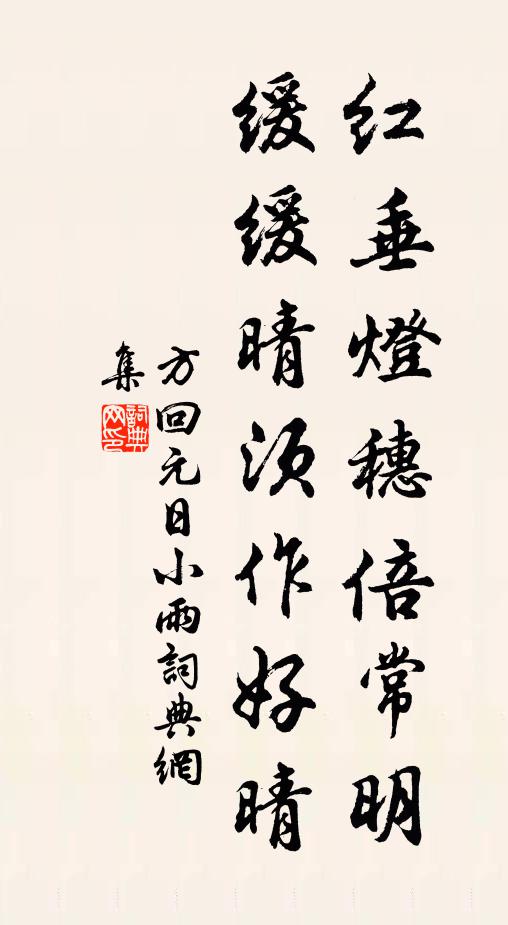 红垂燈穗倍常明
缓缓晴须作好晴
方回元日小雨詞典網
集
詞典网印